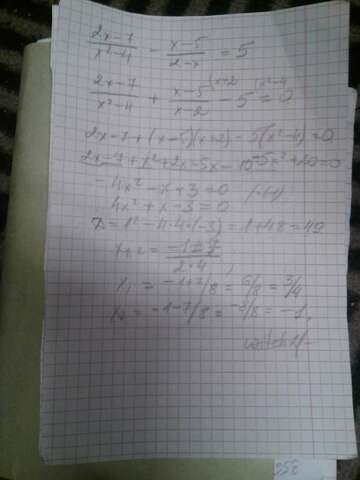 2x-7/x²-4 - x-5/2-x = 5
2x-7/x²-4 + x-5/x-2 |x+2 - 5 |x²-4 = 0
2x-7+(x-5)(x+2)-5(x²-4)=0
2x-7+x²+2x-5x-10-5x²+20=0
-4x²-x+3=0 /·(-1)
4x²+x-3=0
D=1²-4·4·(-3)=1+48=49
x1,2 = -1±7/2·4
x1 = -1+7/8 = 6/8 = 3/4
x2 = -1-7/8 = -8/8 = -1.
358